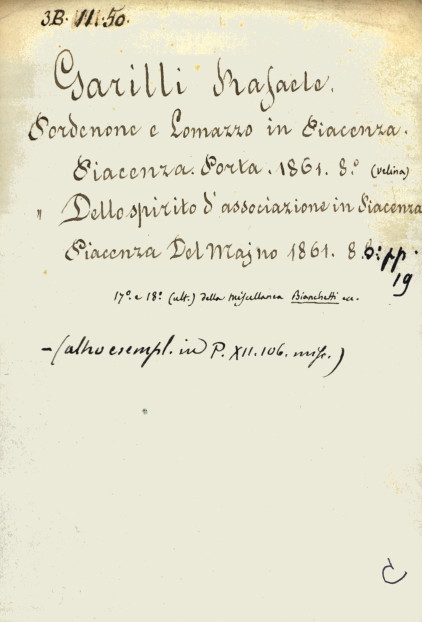 3.B. 11.50.
Garilli Rafaele.
Pordenone e Lomazzo in Piacenza.
Piacenza. Porta. 1861. 8.º (velina)
" Dello spirito d'associazione in Piacenza
Piacenza Del Majno 1861. 8.º: pp.
19
17º e 18º (ult.) della miscellanea Bianchetti ec.
- (altro esempl. in P. XII. 106. misc.)
C